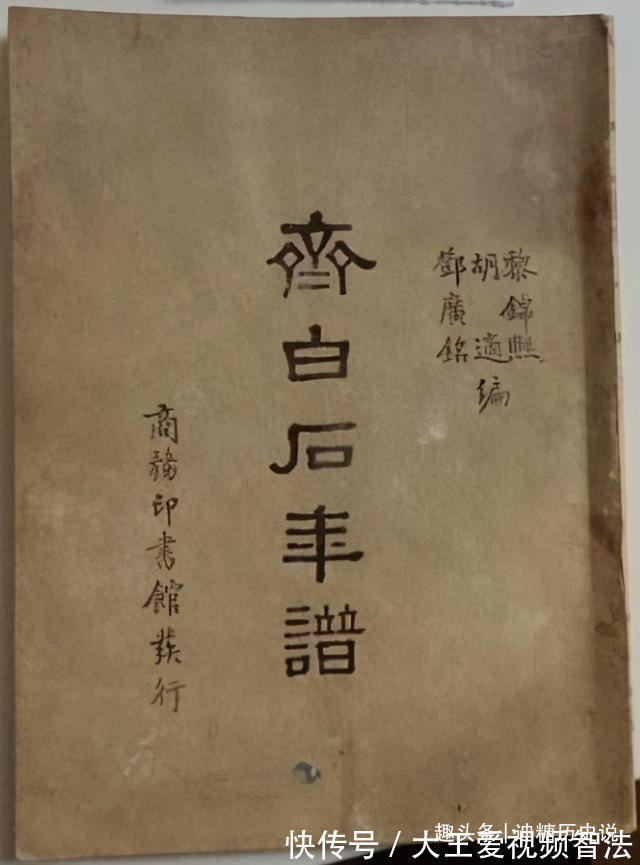 黎錦熙
胡適編
鄧廣銘
齊白石年譜
商務印書館發行
趣头条 | 油糖历史说
快传号 / 大王爱视频智法